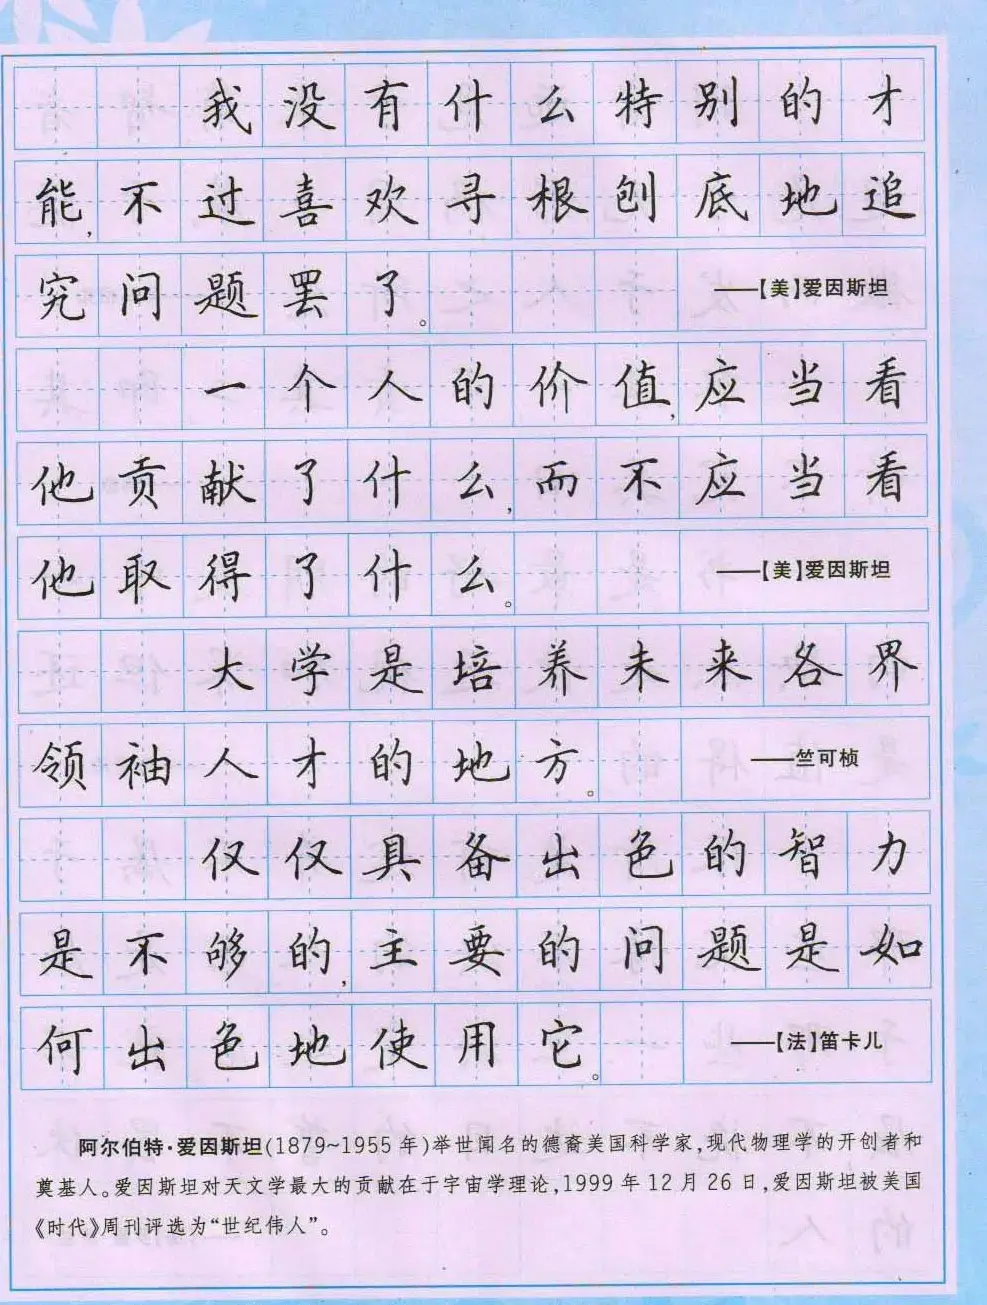 我没有什么特别的才
能,不过喜欢寻根刨底地追
究问题罢了。 ——【美】爱因斯坦
一个人的价值,应当看
他贡献了什么,而不应当看
他取得了什么。 ——【美】爱因斯坦
大学是培养未来各界
领袖人才的地方。 ——竺可桢
仅仅具备出色的智力
是不够的,主要的问题是如
何出色地使用它。 ——【法】笛卡儿
阿尔伯特·爱因斯坦(1879~1955年)举世闻名的德裔美国科学家,现代物理学的开创者和
奠基人。爱因斯坦对天文学最大的贡献在于宇宙学理论,1999年12月26日,爱因斯坦被美国
《时代》周刊评选为“世纪伟人”。